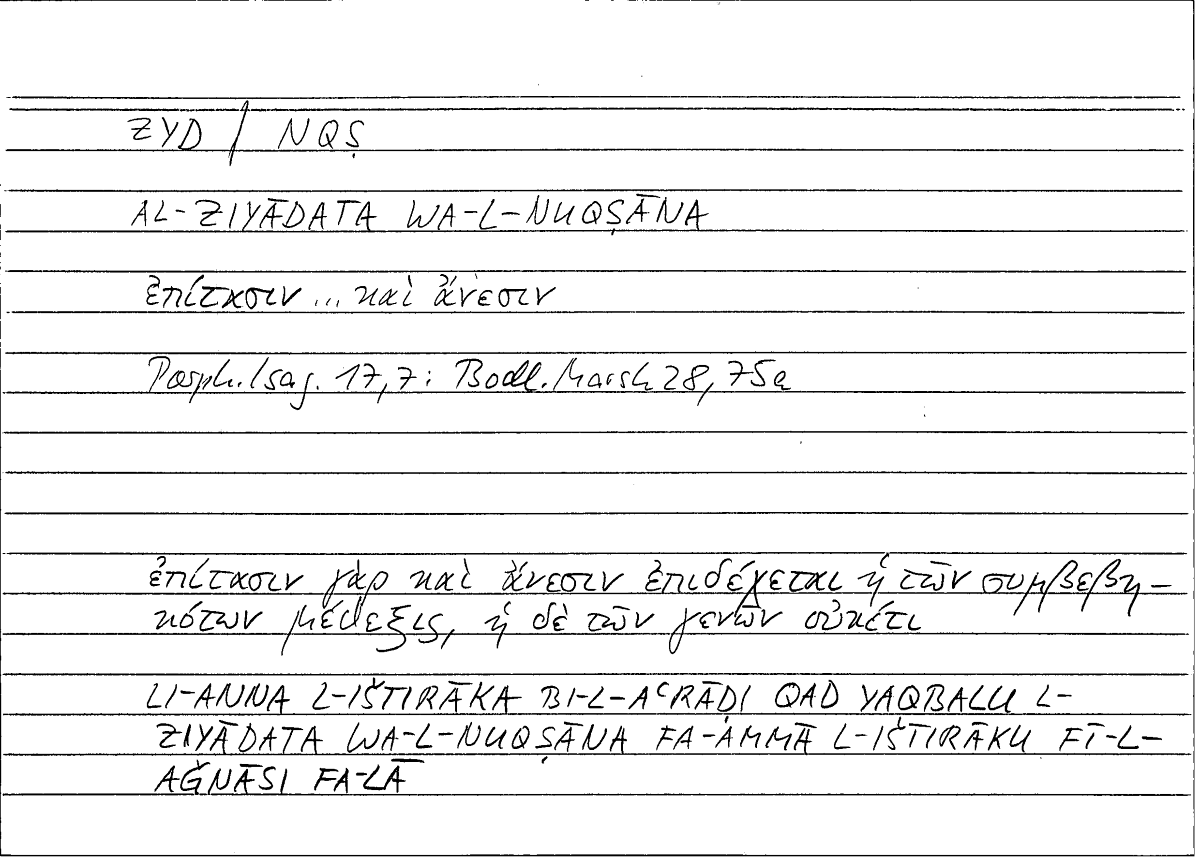 ZYD / NQṢ
AL-ZIYĀDATA WA-L-NUQṢĀNA
ἐπίτασιν ... καὶ ἄνεσιν
Porph. Isag. 17,7: Bodl. Marsh 28, 75a
ἐπίτασιν γὰρ καὶ ἄνεσιν ἐπιδέχεται ἡ τῶν συμβεβη-
κότων μέθεξις, ἡ δὲ τῶν γενῶν οὐκέτι
LI-ANNA L-IŠTIRĀKA BI-L-AʿRĀḌI QAD YAQBALU L-
ZIYĀDATA WA-L-NUQṢĀNA FA-AMMĀ L-IŠTIRĀKU FĪ-L-
AǦNĀSI FA-LĀ